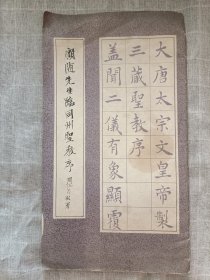 大唐太宗文皇帝製
三藏聖教序
蓋聞二儀有象顯覆
顧隨先生臨同州聖教序